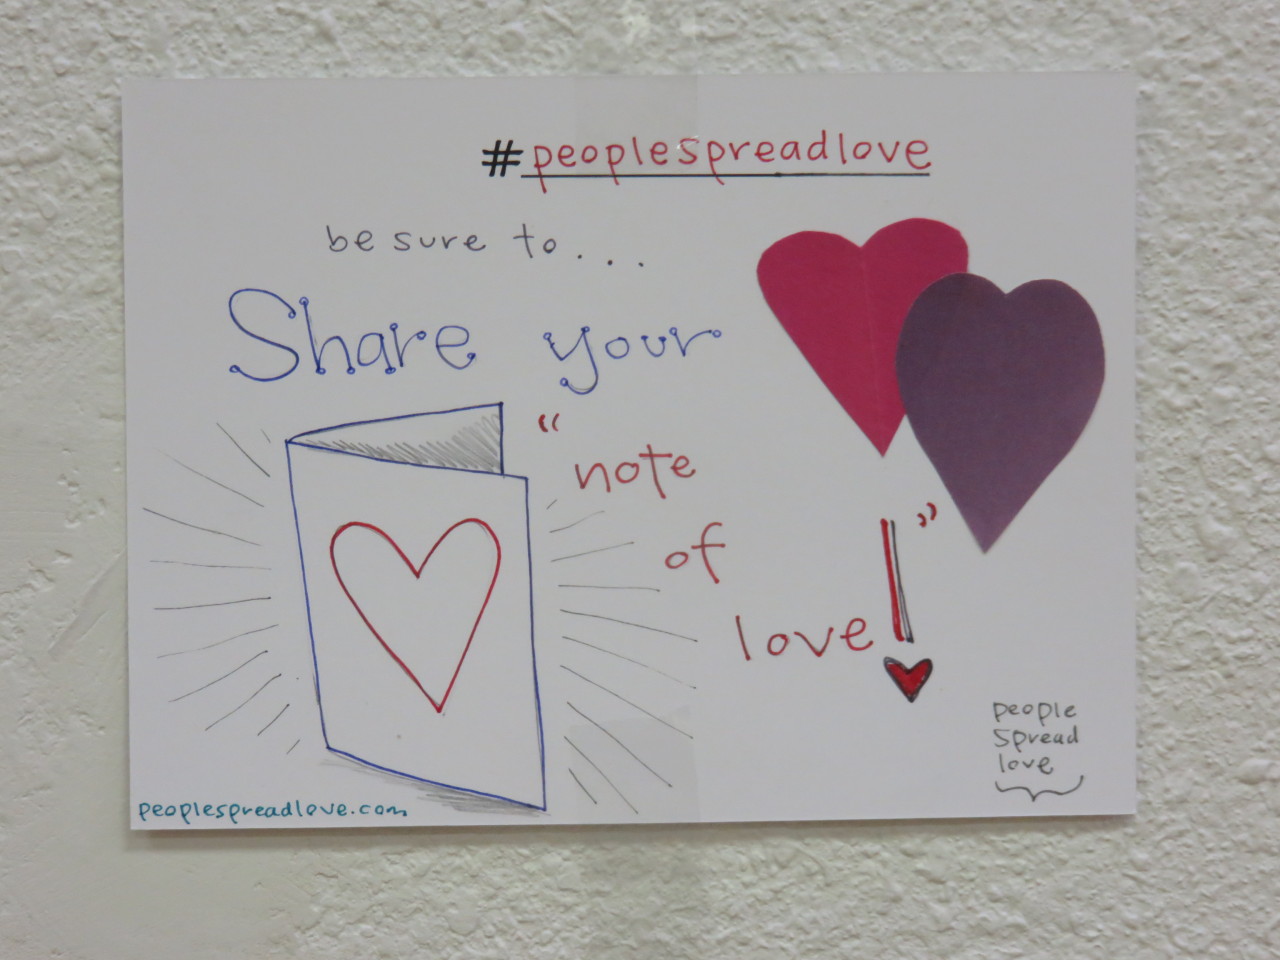 #peoplespreadlove
be sure to...
Share your
"note
of
love!"
people
spread
love
peoplespreadlove.com